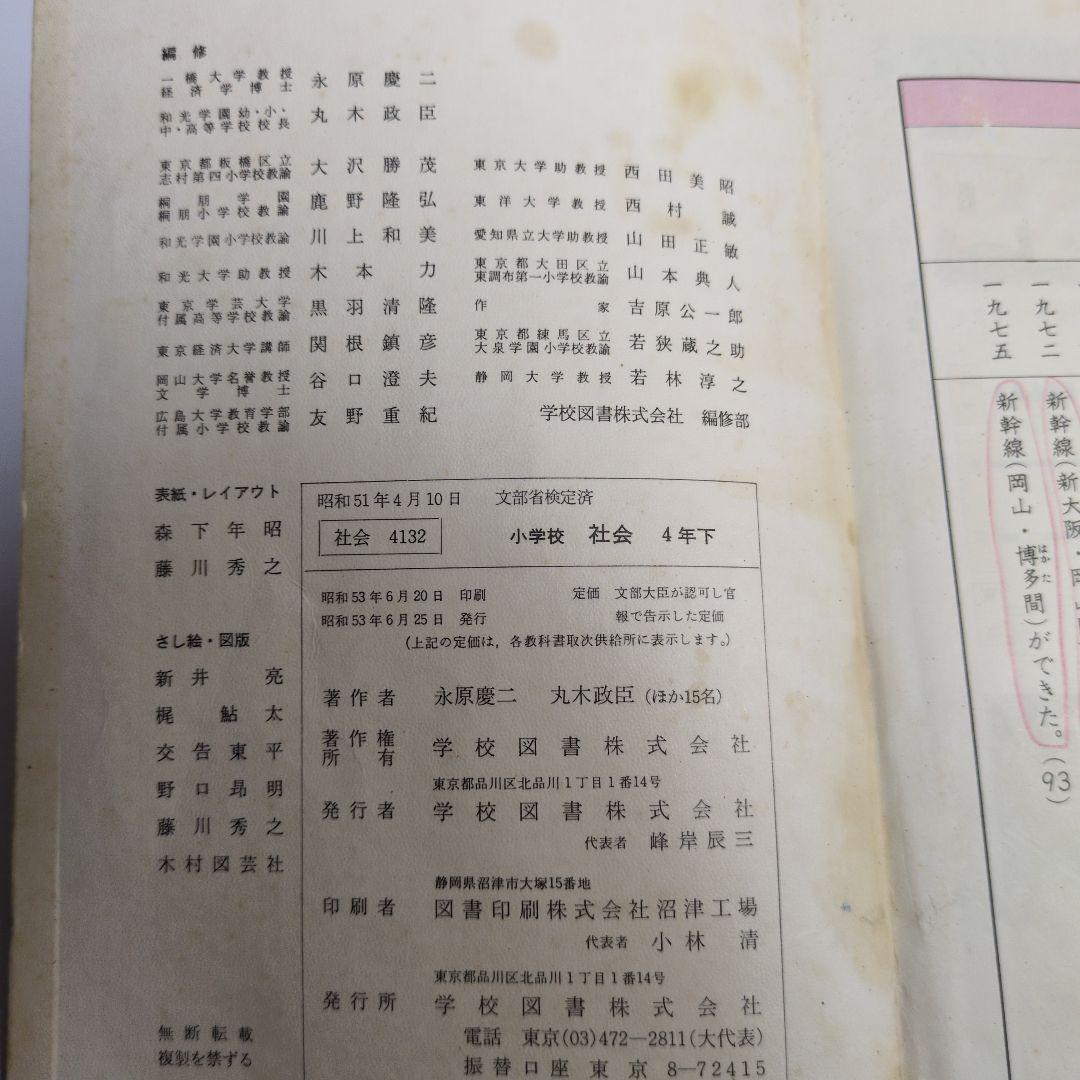 編修
一橋大学教授
経済学博士
永原慶二
和光学園幼・小・
中・高等学校校長
丸木政臣
東京都板橋区立
志村第四小学校教諭
大沢勝茂
桐朋学園
桐朋小学校教諭
鹿野隆弘
和光学園小学校教諭
川上和美
和光大学助教授
木本力
東京学芸大学
付属高等学校教諭
黒羽清隆
東京経済大学講師
関根鎮彦
岡山大学名誉教授
文学博士
谷口澄夫
広島大学教育学部
付属小学校教諭
友野重紀
東京大学助教授
西田美昭
東洋大学教授
西村誠
愛知県立大学助教授
山田正敏
東京都大田区立
東調布第一小学校教諭
山本典人
作家
吉原公一郎
東京都練馬区立
大泉学園小学校教諭
若狭蔵之助
静岡大学教授
若林淳之
学校図書株式会社 編修部
表紙・レイアウト
森下年昭
藤川秀之
さし絵・図版
新井亮
梶鮎太
交告東平
野口昂明
藤川秀之
木村図芸社
無断転載
複製を禁ずる
昭和51年4月10日 文部省検定済
社会 4132
小学校 社会 4年下
昭和53年6月20日 印刷
昭和53年6月25日 発行
定価 文部大臣が認可し官
報で告示した定価
(上記の定価は，各教科書取次供給所に表示します。)
著作者 永原慶二 丸木政臣(ほか15名)
著作権
所有
学校図書株式会社
東京都品川区北品川1丁目1番14号
発行者 学校図書株式会社
代表者 峰岸辰三
静岡県沼津市大塚15番地
印刷者 図書印刷株式会社沼津工場
代表者 小林清
東京都品川区北品川1丁目1番14号
発行所 学校図書株式会社
電話 東京(03)472-2811(大代表)
振替口座東京 8-72415
一九七二
新幹線(新大阪・岡山
一九七五
新幹線(岡山・博多間)ができた。(93)
はかた